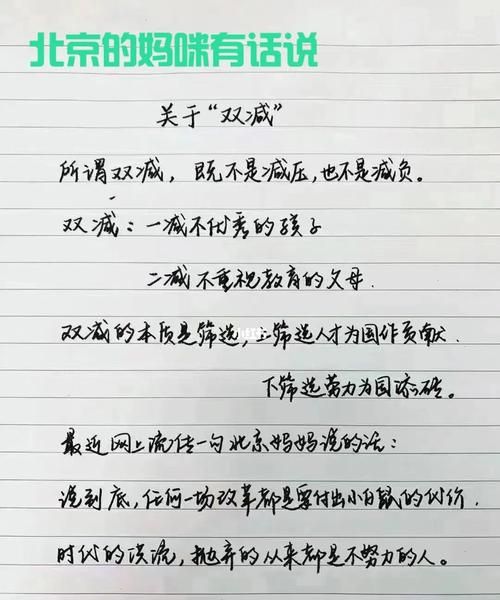 北京的妈咪有话说
关于“双减”
所谓双减，既不是减压，也不是减负。
双减：一减不优秀的孩子
二减不重视教育的父母.
双减的本质是筛选，上筛选人才为国作贡献.
下筛选劳力为国添砖。
最近网上流传一句北京妈妈说的话：
说到底，任何一场改革都是要付出小白鼠的代价.
时代的洪流，抛弃的从来都是不努力的人。